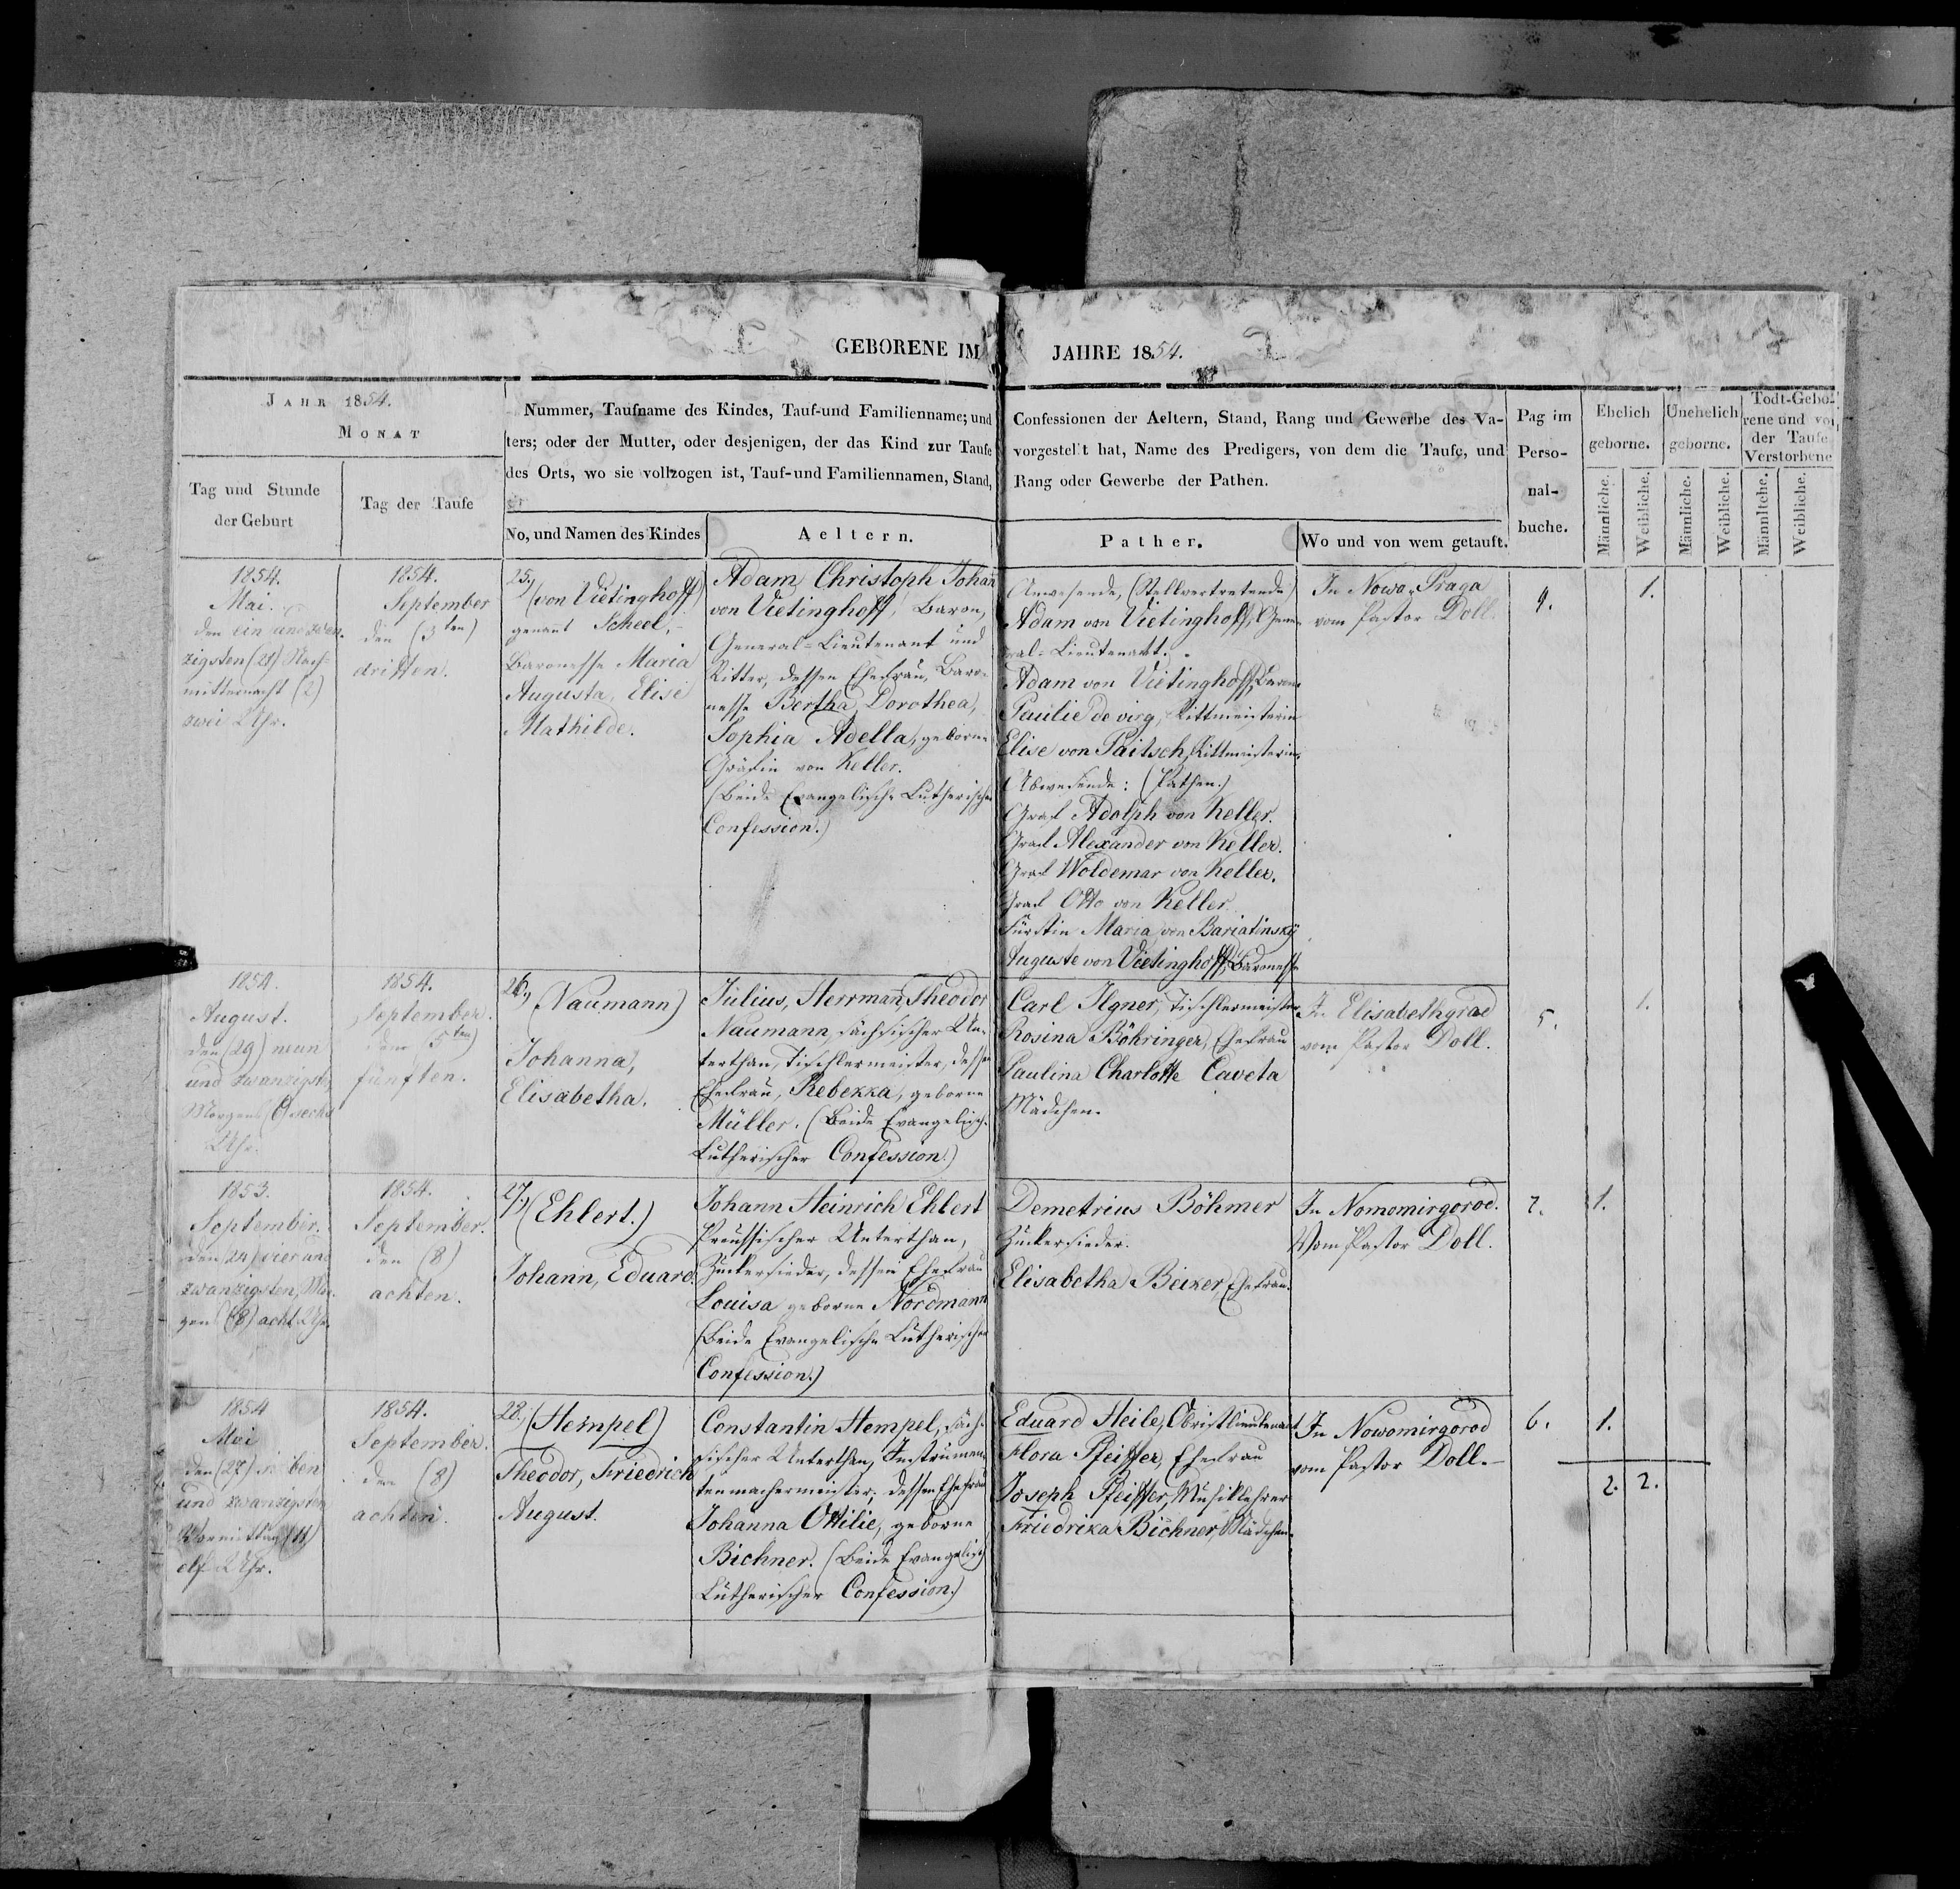 GEBORENE IM JAHRE 1854.
JAHR 1854.
MONAT
Tag und Stunde
der Geburt
Tag der Taufe
Nummer, Taufname des Kindes, Tauf-und Familienname; und Confessionen der Aeltern, Stand, Rang und Gewerbe des Va-
ters; oder der Mutter, oder desjenigen, der das Kind zur Taufe vorgestellt hat, Name des Predigers, von dem die Taufe, und
des Orts, wo sie vollzogen ist, Tauf-und Familiennamen, Stand, Rang oder Gewerbe der Pathen.
No, und Namen des Kindes
Aeltern.
Pather.
Wo und von wem getauft.
Pag im
Perso-
nal-
buche.
Ehelich
geborne.
Unehelich
geborne.
Todt-Gebo-
rene und vor
der Taufe
Verstorbene
Männliche.
Weibliche.
Männliche.
Weibliche.
Männliche.
Weibliche.
1854.
Mai.
den ein und zwan-
zigsten (21) Nach-
mitternacht (2)
zwei Uhr.
1854.
September
den (3ten)
dritten.
25.,
(von Vietinghoff)
genant Scheel,
Baronesse Maria
Augusta, Elise
Mathilde.
Adam Christoph Johan
von Vietinghoff, Baron,
General-Lieutenant und
Ritter, dessen Ehefrau, Baro-
nesse Bertha Dorothea,
Sophia Adella, geborne
Gräfin von Keller.
(Beide Evangelische Lutherischer
Confession.)
Anwesende, (Stellvertretende)
Adam von Vietinghoff, Gene-
ral-Lieutenant.
Adam von Vietinghoff, Baron
Paulie de virg, Rittmeisterin
Elise von Paitsch, Rittmeisterin,
Abwesende: (Pathen.)
Graf Adolph von Keller.
Graf Alexander von Keller.
Graf Woldemar von Keller.
Graf Otto von Keller.
Fürstin Maria von Bariatinsky
Auguste von Vietinghoff, Baronesse
In Nowo-Praga
vom Pastor Doll.
4.
1.
1854.
August.
den (29) neun
und zwanzigst,
Morgens (6) sechs
Uhr.
1854.
September.
den 5ten)
fünften.
26., (Naumann)
Johanna,
Elisabetha.
Julius, Herrman, Theodor
Naumann, sächsischer Un-
terthan, Tischlermeister, dessen
Ehefrau, Rebekka, geborne
Müller. (Beide Evangelisch-
Lutherischer Confession.)
Carl Ilgner, Tischlermeister
Rosina Böhringer, Ehefrau
Paulina Charlotte Caveta
Mädchen.
In Elisabethgrad
vom Pastor Doll.
5.
1.
1853.
September.
den (24) vier und
zwanzigsten, Mor-
gens (8) acht Uhr.
1854.
September.
den (8)
achten.
27., (Ehlert.)
Johann, Eduard.
Johann Heinrich Ehlert
Preussischer Unterthan,
Zuckersieder, dessen Ehefrau
Louisa geborne Nordmann
(Beide Evangelische Lutherischer
Confession.)
Demetrius Böhmer
Zuckersieder.
Elisabetha Beiker, Ehefrau.
In Nomomirgorod.
Vom Pastor Doll.
7.
1.
1854
Mai
den (27) sieben
und zwanzigsten
Vormittag (11)
elf Uhr.
1854.
September.
den (8)
achten.
28., (Hempel)
Theodor, Friedrich
August.
Constantin Hempel, säch-
sischer Unterthan, Instrumen-
tenmachermeister, dessen Ehefrau
Johanna Ottilie, geborne
Bichner. (Beide Evangelisch
Lutherischer Confession.)
Eduard Heile, Obristlieutenant
Flora Pfeiffer, Ehefrau
Joseph Pfeiffer, Musiklehrer
Friedrika Bichner, Mädchen.
In Nowomirgorod
vom Pastor Doll.
6.
1.
2. 2.